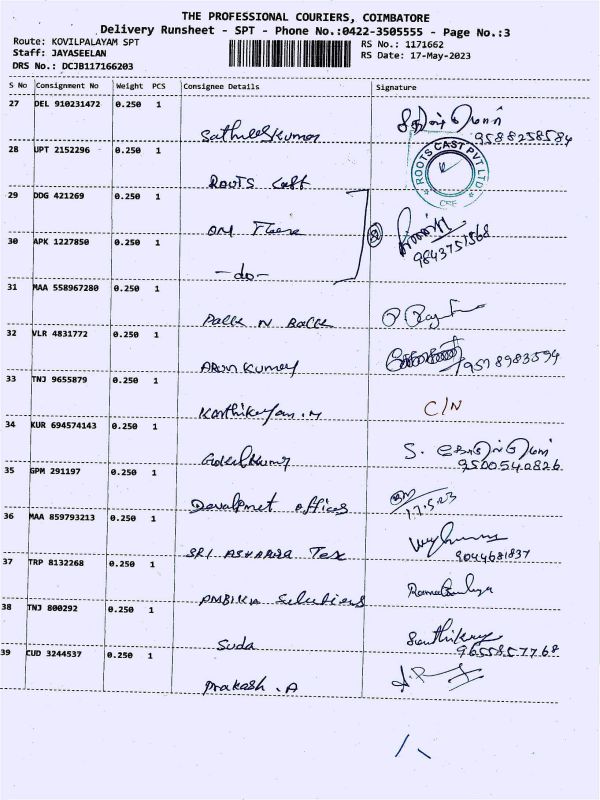 THE PROFESSIONAL COURIERS, COIMBATORE
Delivery Runsheet - SPT - Phone No.:0422-3505555 - Page No.:3
Route: KOVILPALAYAM SPT
RS No.: 1171662
Staff: JAYASEELAN
RS Date: 17-May-2023
DRS No.: DCJB117166203
S No Consignment No Weight PCS Consignee Details Signature
27 DEL 910231472 0.250 1
Sathishkumar 9588258584
28 UPT 2152296 0.250 1
ROOTS CAST PVT LTD
Roots Cast
29 DDG 421269 0.250 1
OM
30 APK 1227850 0.250 1
9843751568
-do-
31 MAA 558967280 0.250 1
Palle N Balle
32 VLR 4831772 0.250 1
Arun kumar 9578983594
33 TNJ 9655879 0.250 1
Karthikeyan.M C/N
34 KUR 694574143 0.250 1
S.
Gokulkumar 9500540826
35 GPM 291197 0.250 1
Devalpmet offices 17.5.23
36 MAA 859793213 0.250 1
SRI Tex 9044681837
37 TRP 8132268 0.250 1
AMBIKA Selections
38 TNJ 800292 0.250 1
Suda 9655857768
39 CUD 3244537 0.250 1
Prakash.A